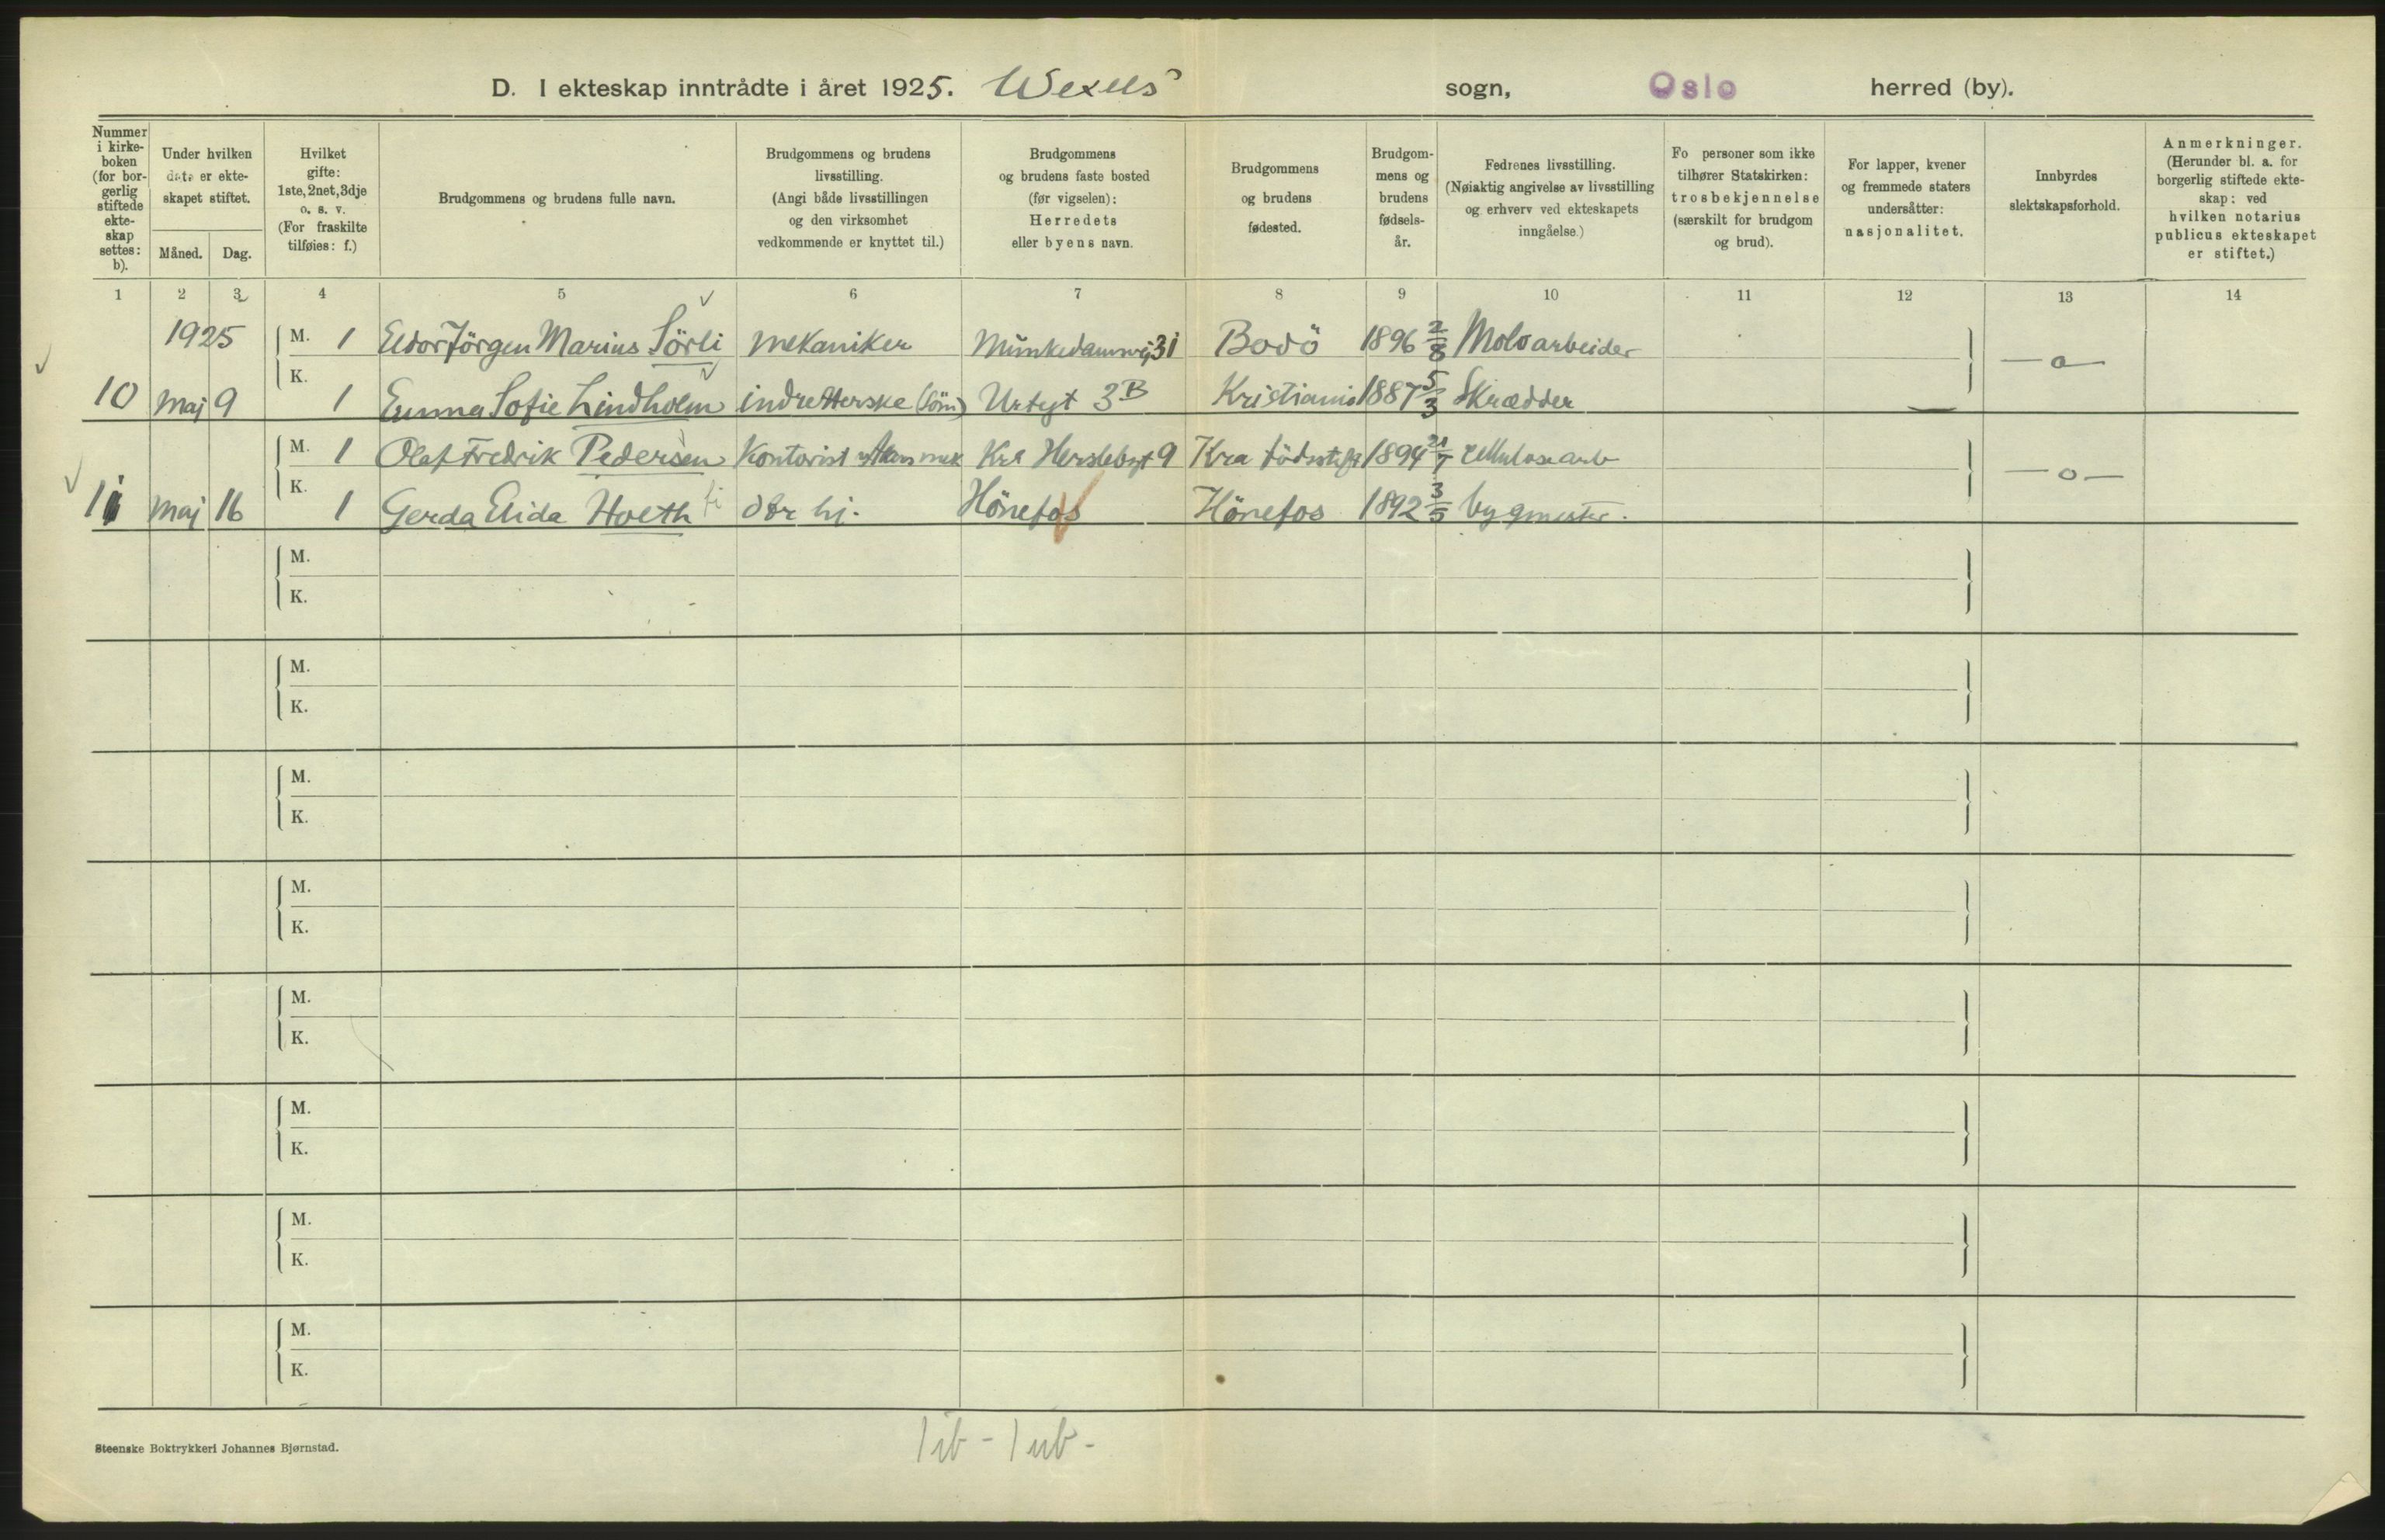 D. I ekteskap inntrådte i året 1925. Wexels sogn, Oslo herred (by).
Nummer i kirke-boken (for bor-gerlig stiftede ekte-skap settes: b).
Under hvilken dato er ekte-skapet stiftet.
Måned. Dag.
Hvilket gifte: 1ste, 2net, 3dje o. s. v. (For fraskilte tilføies: f.)
Brudgommens og brudens fulle navn.
Brudgommens og brudens livsstilling. (Angi både livsstillingen og den virksomhet vedkommende er knyttet til.)
Brudgommens og brudens faste bosted (før vigselen): Herredets eller byens navn.
Brudgommens og brudens fødested.
Brudgom-mens og brudens fødsels-år.
Fedrenes livsstilling. (Nøiaktig angivelse av livsstilling og erhverv ved ekteskapets inngåelse.)
Fo personer som ikke tilhører Statskirken: trosbekjennelse (særskilt for brudgom og brud).
For lapper, kvener og fremmede staters undersåtter: nasjonalitet.
Innbyrdes slektskapsforhold.
Anmerkninger. (Herunder bl. a. for borgerlig stiftede ekte-skap: ved hvilken notarius publicus ekteskapet er stiftet.)
1 2 3 4 5 6 7 8 9 10 11 12 13 14
1925 M. 1 Eldor Jörgen Marius Sörli mekaniker Munkedamsvej 31 Bodö 1896 2/8 Moloarbeider
10 Maj 9 K. 1 Emma Sofie Lindholm indretterske (söm) Urtegt 3B Kristiania 1887 5/3 Skrædder — o —
M. 1 Olaf Fredrik Pedersen Kontorist Akers mek Kra Herslebsgt 9 Kra födsstift 1894 21/7 cellulosearb
11 Maj 16 K. 1 Gerda Elida Hoeth Hönefos Hönefos 1892 3/5 bygmester. — o —
M.
K.
M.
K.
M.
K.
M.
K.
M.
K.
M.
K.
M.
K.
M.
K.
Steenske Boktrykkeri Johannes Bjørnstad.
1 ib - 1 ub -